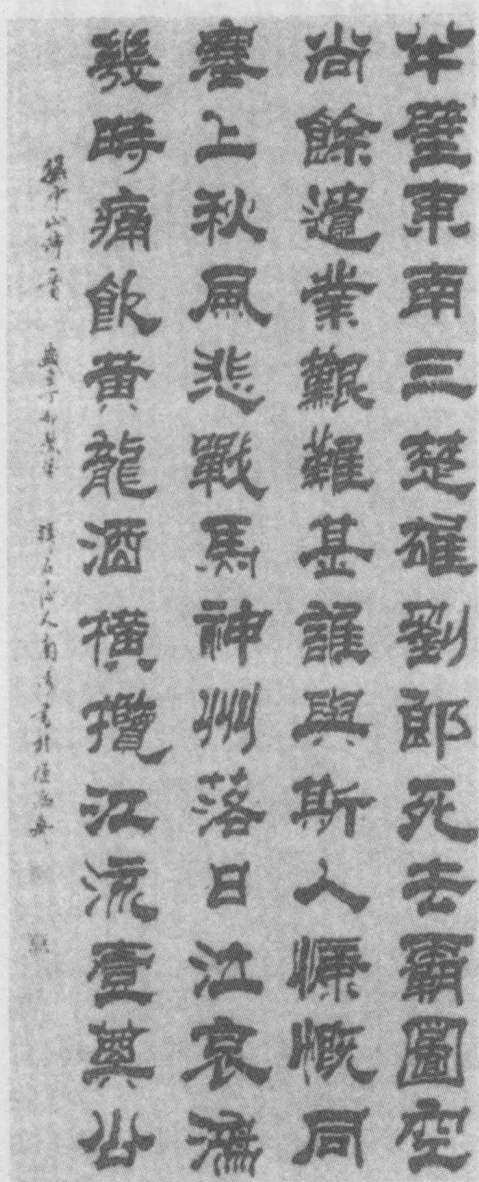 半壁東南三楚雄劉郎死去霸圖空
尚餘遺業艱難甚誰與斯人慷慨同
塞上秋風悲戰馬神州落日泣哀鴻
幾時痛飲黃龍酒橫攬江流壹奠公
孫中山詩 歲在丁卯 人 書於